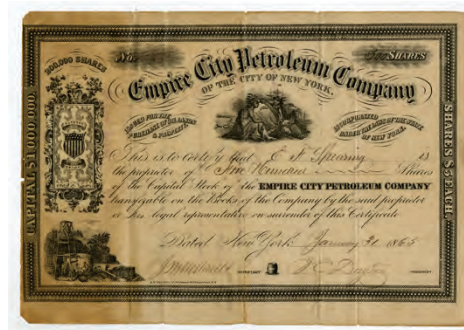 200,000 SHARES
No.
SHARES
Empire City Petroleum Company
OF THE CITY OF NEW YORK.
ISSUED FOR THE
PURCHASE OF THE LANDS
& PROPERTY.
INCORPORATED
UNDER THE LAWS OF THE STATE
OF NEW YORK.
CAPITAL $1,000,000
SHARES $5 EACH.
This is to certify that E F Spearing is
the proprietor of Five Hundred Shares
of the Capital Stock of the EMPIRE CITY PETROLEUM COMPANY
transferable on the Books of the Company by the said proprietor
or his legal representative on surrender of this Certificate
Dated New York January 31 1865
SECRETARY
PRESIDENT